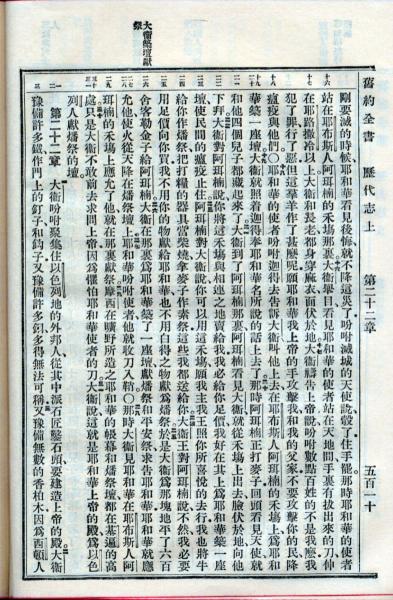 舊約全書 歷代志上 第二十二章 五百一十
剛要滅的時候、耶和華看見後悔、就不降這災了、吩咐滅城的天使說、彀了、住手罷、那時耶和華的使者
十六 站在耶布斯人阿珥楠的禾場那裏、大衞舉目、看見耶和華的使者站在天地間、手裏有拔出來的刀、伸
十七 在耶路撒冷以上、大衞和長老都身穿麻衣、面伏於地、大衞禱告上帝說、吩咐數點百姓的不是我麼、我
犯了罪、行了惡、但這羣羊作了甚麼呢、願耶和華我上帝的手攻擊我和我的父家、不要攻擊你的民、降
十八 瘟疫與他們○耶和華的使者吩咐迦得去告訴大衞、叫他上去、在耶布斯人阿珥楠的禾場上、爲耶和
十九二十 華築一座壇、大衞就照着迦得奉耶和華名所說的話上去了、那時阿珥楠正打麥子、回頭看見天使、就
二一 和他四個兒子都藏起來了、大衞到了阿珥楠那裏、阿珥楠看見大衞、就從禾場上出去、臉伏於地、向他
二二 下拜、大衞對阿珥楠說、你將這禾場與相連之地賣給我、我必給你足價、我好在其上爲耶和華築一座
二三 壇、使民間的瘟疫止住、阿珥楠對大衞說、你可以用這禾場、願我主我王照你所喜悅的去行、我也將牛
二四 給你作燔祭、把打糧的器具當柴燒、拿麥子作素祭、這些我都送給你、大衞王對阿珥楠說、不然、我必要
二五 用足價向你買、我不用你的物獻給耶和華、也不用白得之物獻爲燔祭、於是大衞爲那塊地平了六百
二六 舍客勒金子給阿珥楠、大衞在那裏爲耶和華築了一座壇、獻燔祭和平安祭、求告耶和華、耶和華就應
大衞築壇獻祭
二七二八 允他、使火從天降在燔祭壇上、耶和華吩咐使者、他就收刀入鞘○那時大衞見耶和華在耶布斯人阿
二九 珥楠的禾場上應允了他、就在那裏獻祭、摩西在曠野所造之耶和華的帳幕和燔祭壇、都在基遍的高
三十一 處、只是大衞不敢前去求問上帝、因爲懼怕耶和華使者的刀、大衞說、這就是耶和華上帝的殿、爲以色
列人獻燔祭的壇
二 第二十二章 大衞吩咐聚集住以色列地的外邦人、從其中派石匠鑿石頭、要建造上帝的殿、大衞
三 豫備許多鐵作門上的釘子和鈎子、又豫備許多銅、多得無法可稱、又豫備無數的香柏木、因爲西頓人